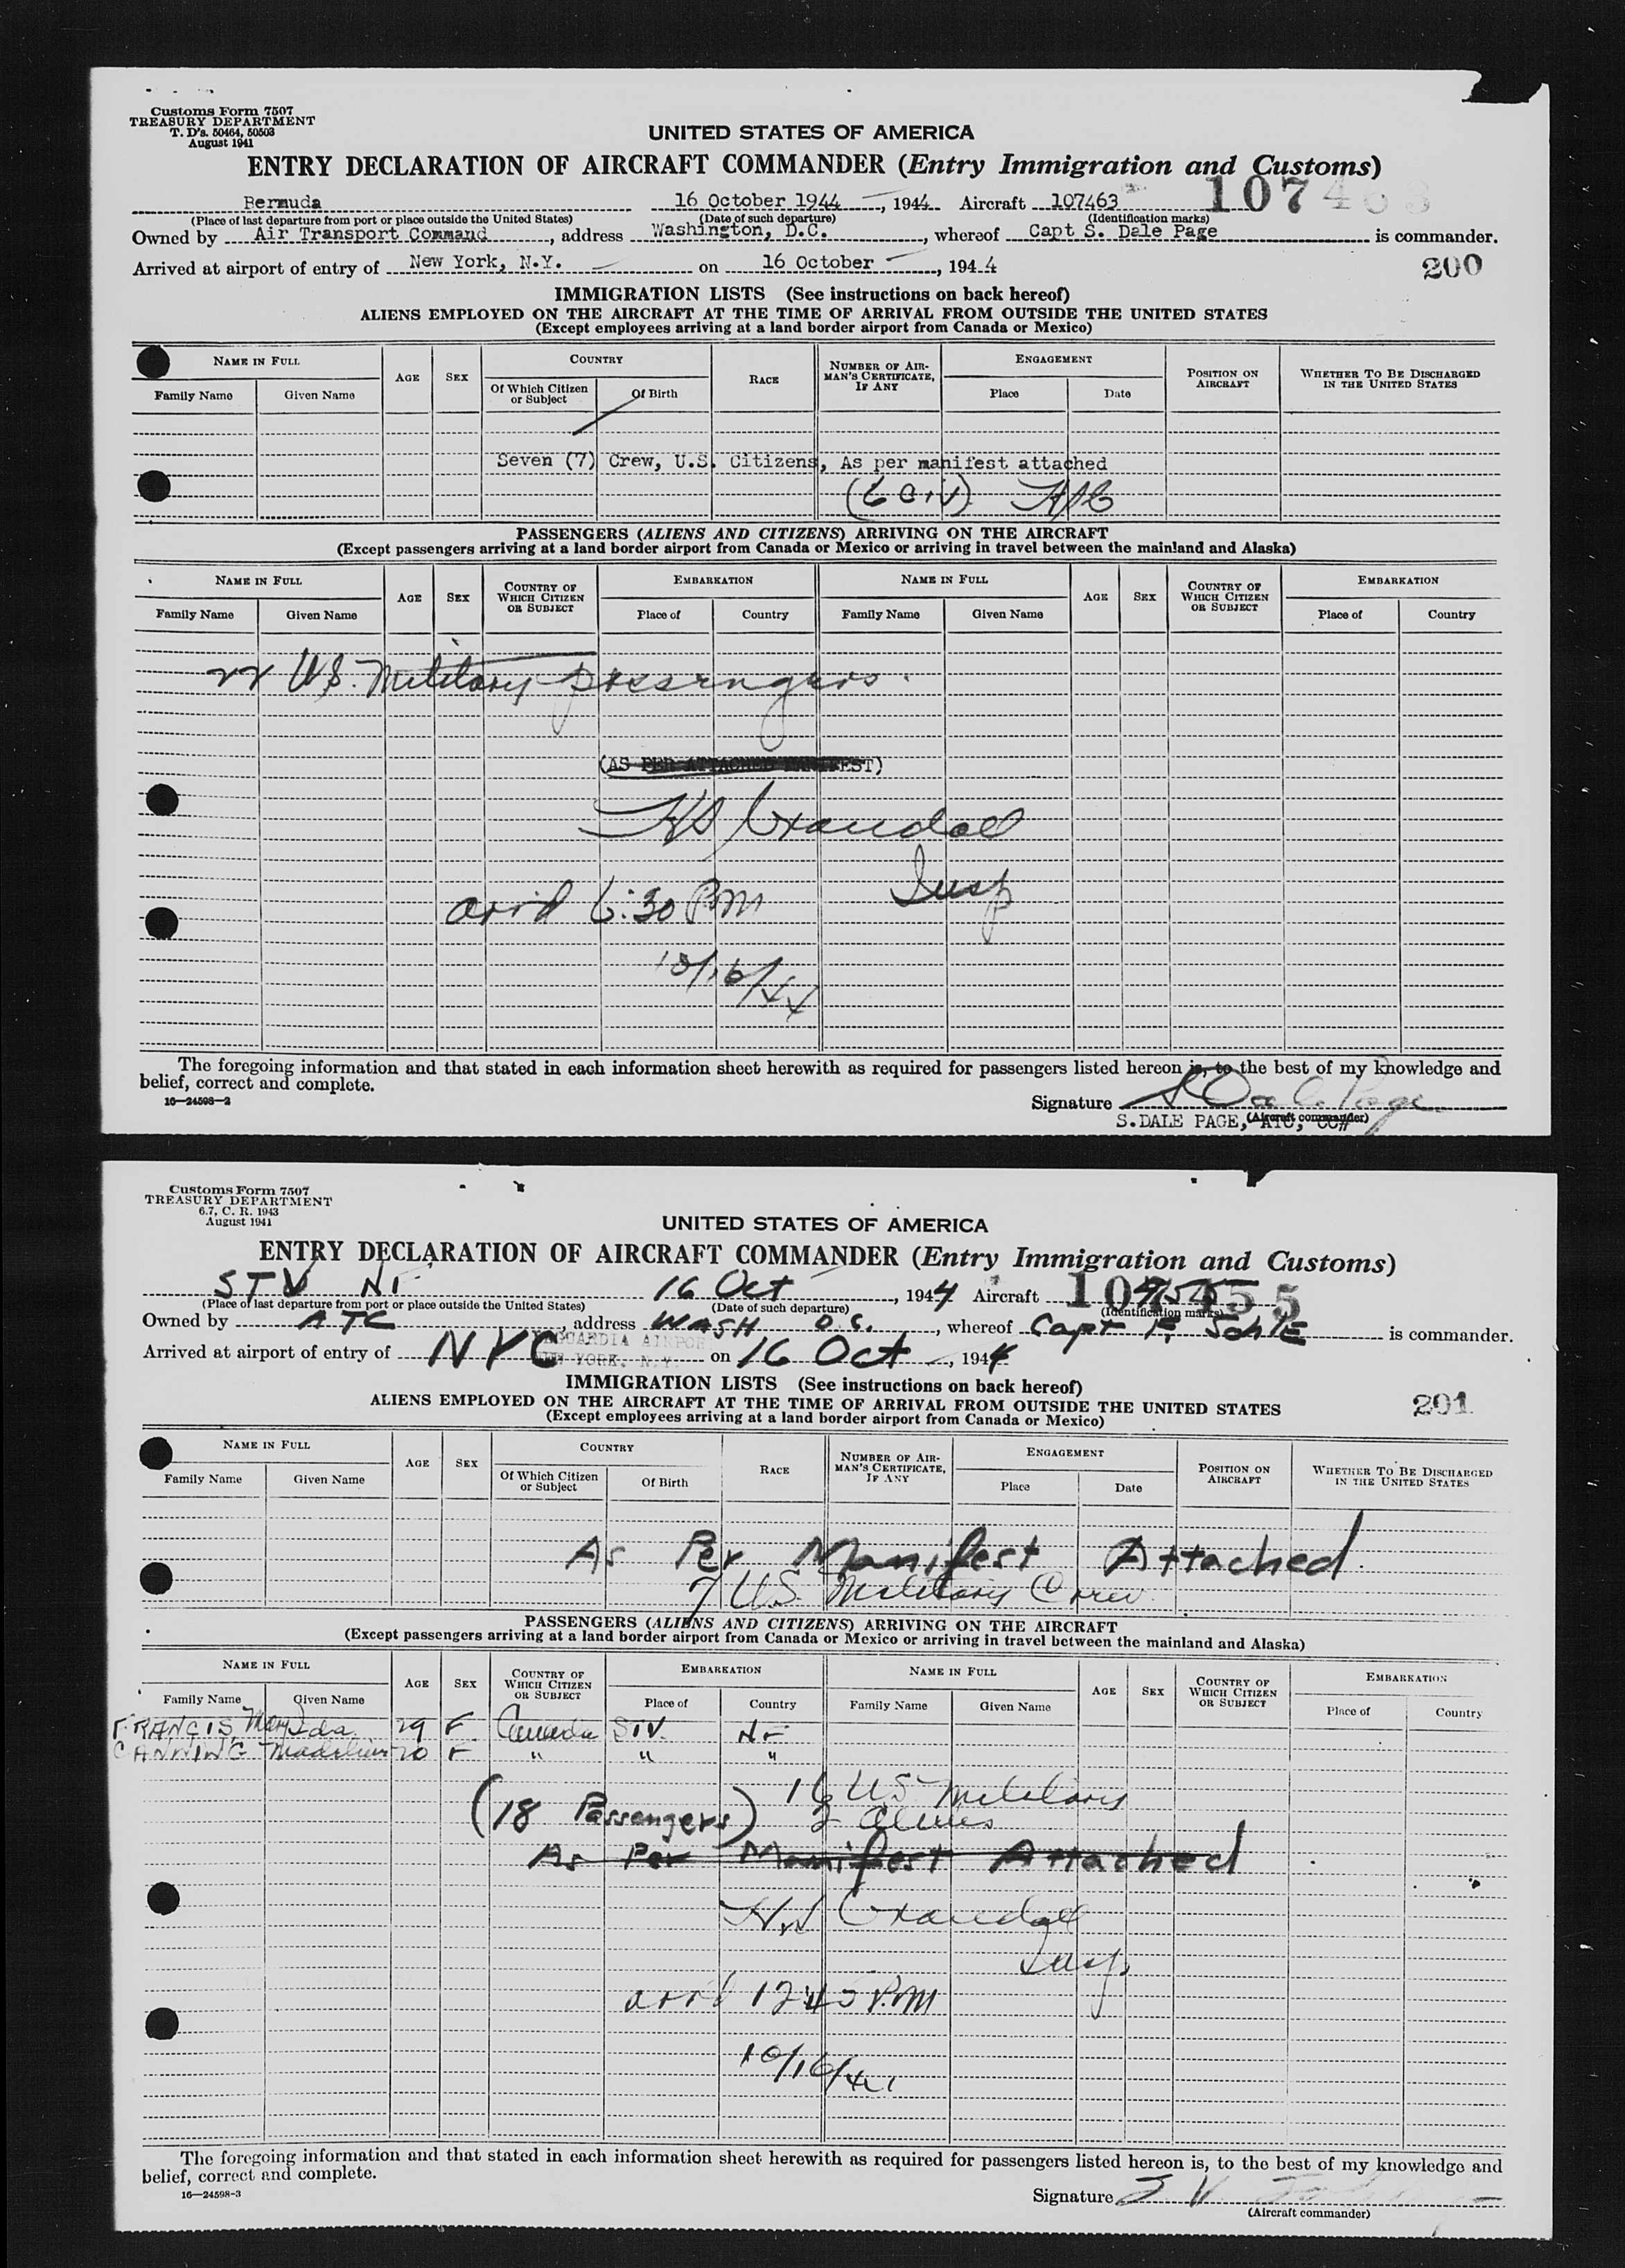 Customs Form 7507
TREASURY DEPARTMENT
T. D's. 50464, 50503
August 1941
UNITED STATES OF AMERICA
ENTRY DECLARATION OF AIRCRAFT COMMANDER (Entry Immigration and Customs)
Bermuda 16 October 1944, 1944 Aircraft 107463 107463
(Place of last departure from port or place outside the United States) (Date of such departure) (Identification marks)
Owned by Air Transport Command, address Washington, D.C., whereof Capt S. Dale Page is commander.
Arrived at airport of entry of New York, N.Y. on 16 October, 1944
200
IMMIGRATION LISTS (See instructions on back hereof)
ALIENS EMPLOYED ON THE AIRCRAFT AT THE TIME OF ARRIVAL FROM OUTSIDE THE UNITED STATES
(Except employees arriving at a land border airport from Canada or Mexico)
NAME IN FULL AGE SEX COUNTRY RACE NUMBER OF AIRMAN'S CERTIFICATE, IF ANY ENGAGEMENT POSITION ON AIRCRAFT WHETHER TO BE DISCHARGED IN THE UNITED STATES
Family Name Given Name Of Which Citizen or Subject Of Birth Place Date
Seven (7) Crew, U.S. Citizens, As per manifest attached
(6 Civ)
PASSENGERS (ALIENS AND CITIZENS) ARRIVING ON THE AIRCRAFT
(Except passengers arriving at a land border airport from Canada or Mexico or arriving in travel between the mainland and Alaska)
NAME IN FULL AGE SEX COUNTRY OF WHICH CITIZEN OR SUBJECT EMBARKATION NAME IN FULL AGE SEX COUNTRY OF WHICH CITIZEN OR SUBJECT EMBARKATION
Family Name Given Name Place of Country Family Name Given Name Place of Country
22 U.S. Military passengers.
(AS PER ATTACHED MANIFEST)
Crandall
Insp
arrd 6:30 PM
10/16/44
The foregoing information and that stated in each information sheet herewith as required for passengers listed hereon is, to the best of my knowledge and
belief, correct and complete.
16—24598-2
Signature S Dale Page
(Aircraft commander)
S. DALE PAGE, ATC, CC#
Customs Form 7507
TREASURY DEPARTMENT
6.7, C. R. 1943
August 1941
UNITED STATES OF AMERICA
ENTRY DECLARATION OF AIRCRAFT COMMANDER (Entry Immigration and Customs)
STV NF 16 Oct, 1944 Aircraft
(Place of last departure from port or place outside the United States) (Date of such departure) (Identification marks)
Owned by ATC, address WASH D.C., whereof Capt is commander.
LAGUARDIA AIRPORT
NEW YORK, N.Y.
Arrived at airport of entry of NYC on 16 Oct, 1944
IMMIGRATION LISTS (See instructions on back hereof)
ALIENS EMPLOYED ON THE AIRCRAFT AT THE TIME OF ARRIVAL FROM OUTSIDE THE UNITED STATES
201
(Except employees arriving at a land border airport from Canada or Mexico)
NAME IN FULL AGE SEX COUNTRY RACE NUMBER OF AIRMAN'S CERTIFICATE, IF ANY ENGAGEMENT POSITION ON AIRCRAFT WHETHER TO BE DISCHARGED IN THE UNITED STATES
Family Name Given Name Of Which Citizen or Subject Of Birth Place Date
As Per Manifest Attached
7 U.S. Military Crew
PASSENGERS (ALIENS AND CITIZENS) ARRIVING ON THE AIRCRAFT
(Except passengers arriving at a land border airport from Canada or Mexico or arriving in travel between the mainland and Alaska)
NAME IN FULL AGE SEX COUNTRY OF WHICH CITIZEN OR SUBJECT EMBARKATION NAME IN FULL AGE SEX COUNTRY OF WHICH CITIZEN OR SUBJECT EMBARKATION
Family Name Given Name Place of Country Family Name Given Name Place of Country
FRANCIS, Mary Ida 29 F Canada STV. NF
CANNING Madeline 20 F " " "
16 U.S. Military
(18 Passengers) 2 Aliens
As Per Manifest Attached
Crandall
Insp
arrd 1245 P.M
10/16/44
The foregoing information and that stated in each information sheet herewith as required for passengers listed hereon is, to the best of my knowledge and
belief, correct and complete.
16—24598-3
Signature
(Aircraft commander)